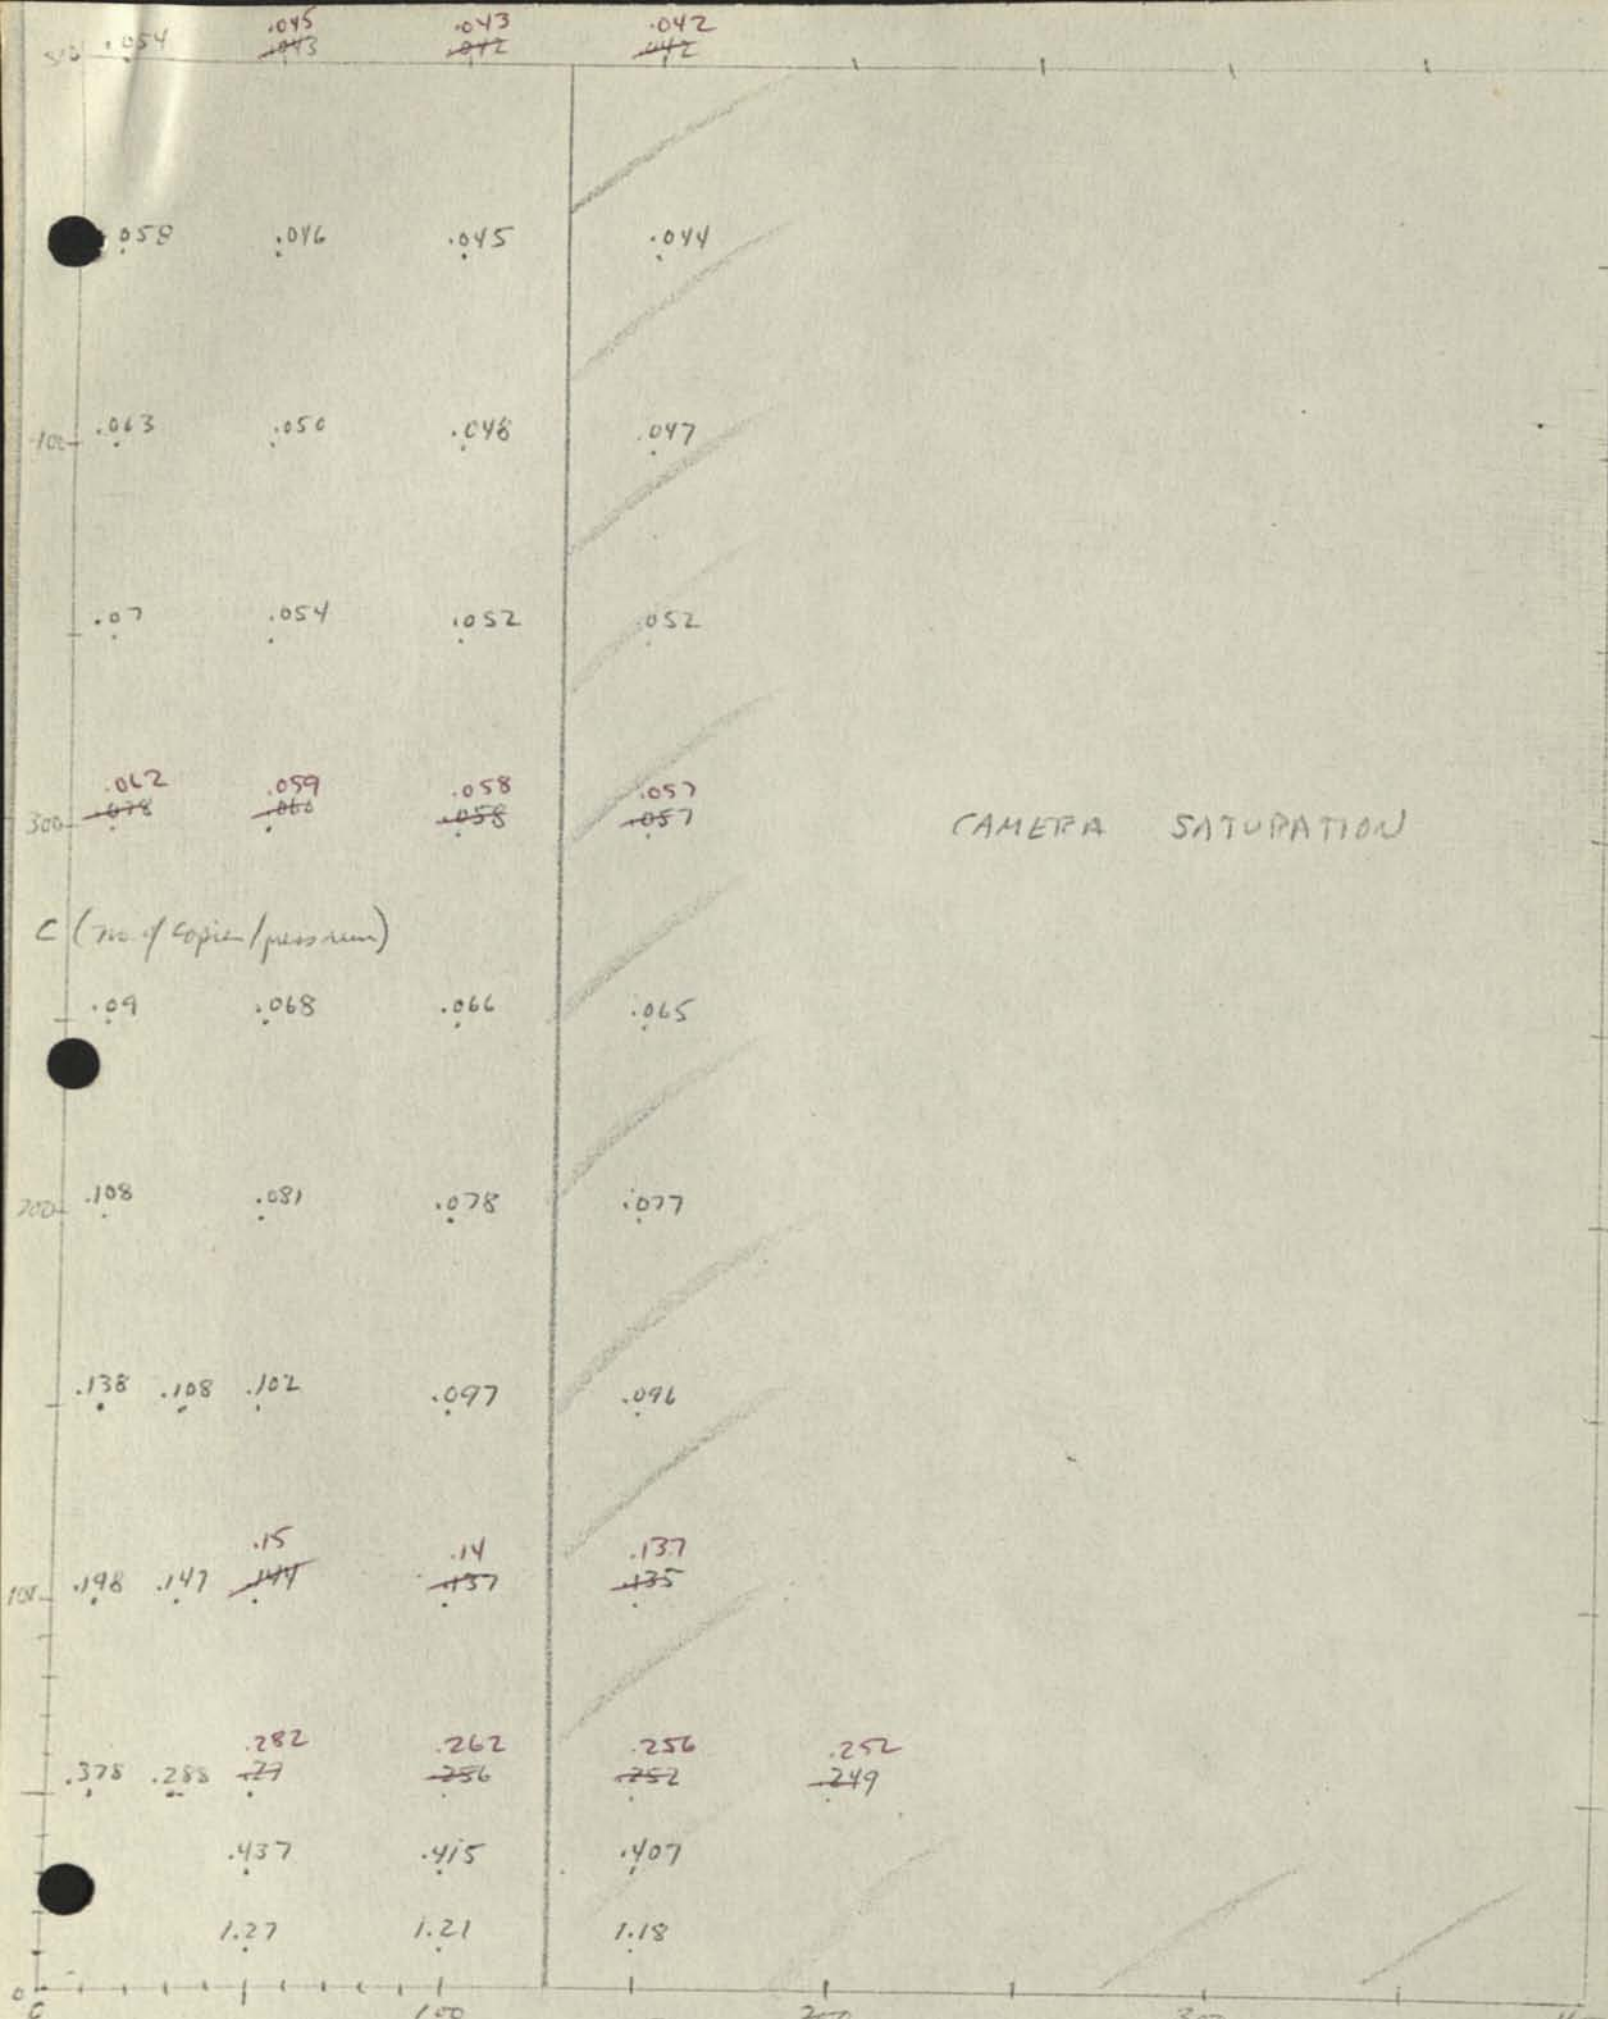 .045 .043 .042
.054 .043 .042 .042
.058 .046 .045 .044
400 .063 .050 .048 .047
.07 .054 .052 .052
.062 .059 .058 .057
.078 .060 .058 .057
300 CAMERA SATURATION
C (no. of copies/press run)
.09 .068 .066 .065
200 .108 .081 .078 .077
.138 .108 .102 .097 .096
.15 .14 .137
100 .198 .147 .144 .137 .135
.282 .262 .256 .252
.378 .288 .27 .256 .252 .249
.437 .415 .407
1.27 1.21 1.18
0
0 100 200 300